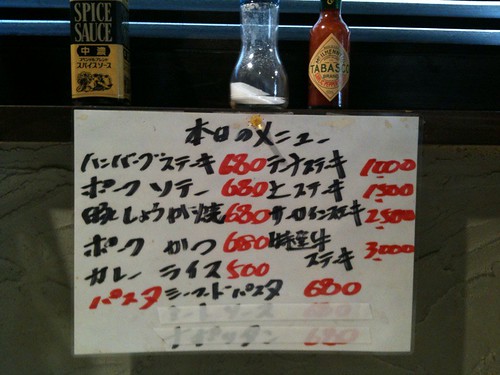 SPICE
SAUCE
中濃
スパイスソース
TABASCO
本日のメニュー
ハンバーグステキ 680
ポーク ソテー 680
豚しょうが焼 680
ポーク かつ 680
カレー ライス 500
テンダステーキ 1000
ヒレステーキ 1500
サーロインステーキ 2500
特選牛
ステーキ 3,000
パスタ シーフードパスタ 680